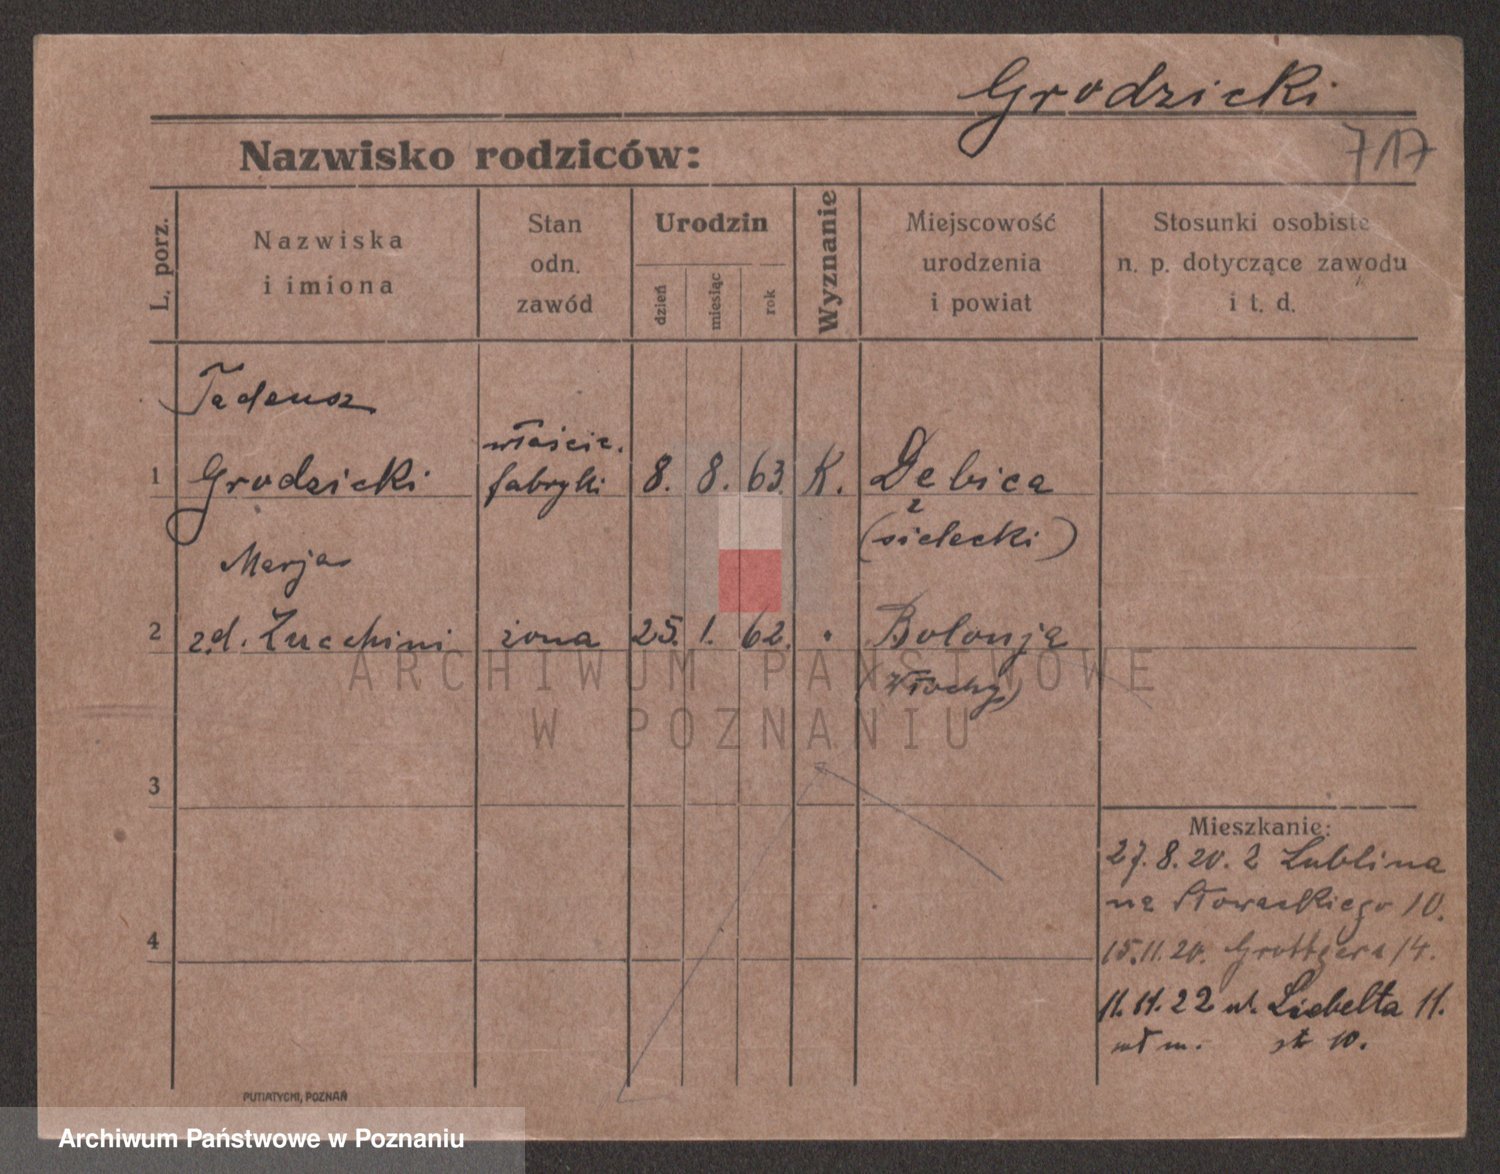 Grodzicki
717
Nazwisko rodziców:
L. porz.
Nazwiska
i imiona
Stan
odn.
zawód
Urodzin
dzień
miesiąc
rok
Wyznanie
Miejscowość
urodzenia
i powiat
Stosunki osobiste
n. p. dotyczące zawodu
i t. d.
Tadeusz
1 Grodzicki
właścic.
fabryki
8. 8. 63. K.
Dębica
(sielecki)
Marja
2 z.d. Zucchini żona 25. 1. 62. Bolonja
(Włochy)
3
4
Mieszkanie:
27.8.20. z Lublina
na Słowackiego 10.
15.11.20. Grottgera 14.
11.11.22 ul. Libelta 11.
10.
PUTIATYCKI, POZNAŃ
ARCHIWUM PAŃSTWOWE
W POZNANIU
Archiwum Państwowe w Poznaniu